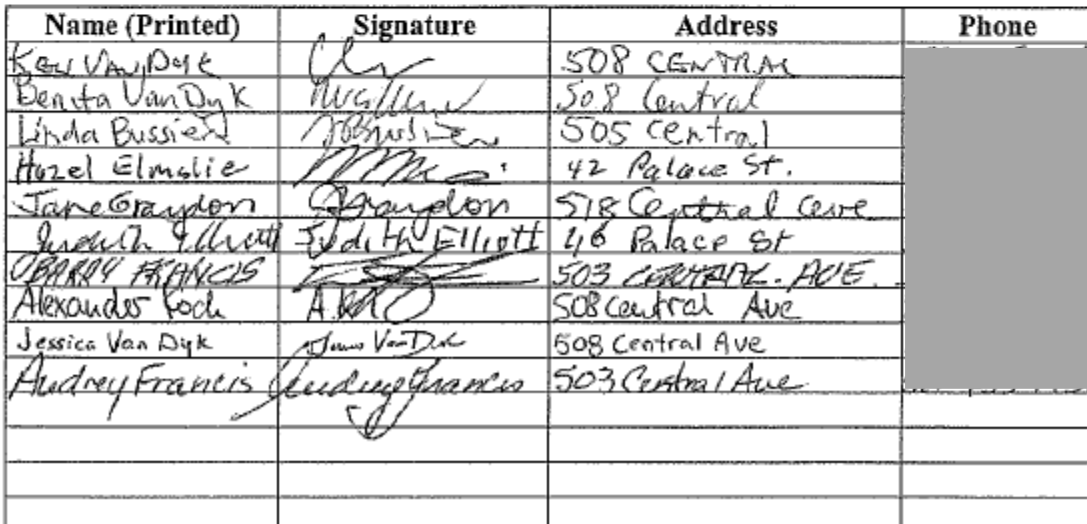 Name (Printed) Signature Address Phone
Ken Van Dyke 508 CENTRAL
Benita Van Dyk 508 Central
Linda Bussiere 505 Central
Hazel Elmslie 42 Palace St.
Jane Graydon JGraydon 518 Central Ave
Judith Elliott Judith Elliott 46 Palace St
BARRY FRANCIS 503 CENTRAL. AVE.
Alexander 508 Central Ave
Jessica Van Dyk Van Dyk 508 Central Ave
Audrey Francis Audrey Francis 503 Central Ave